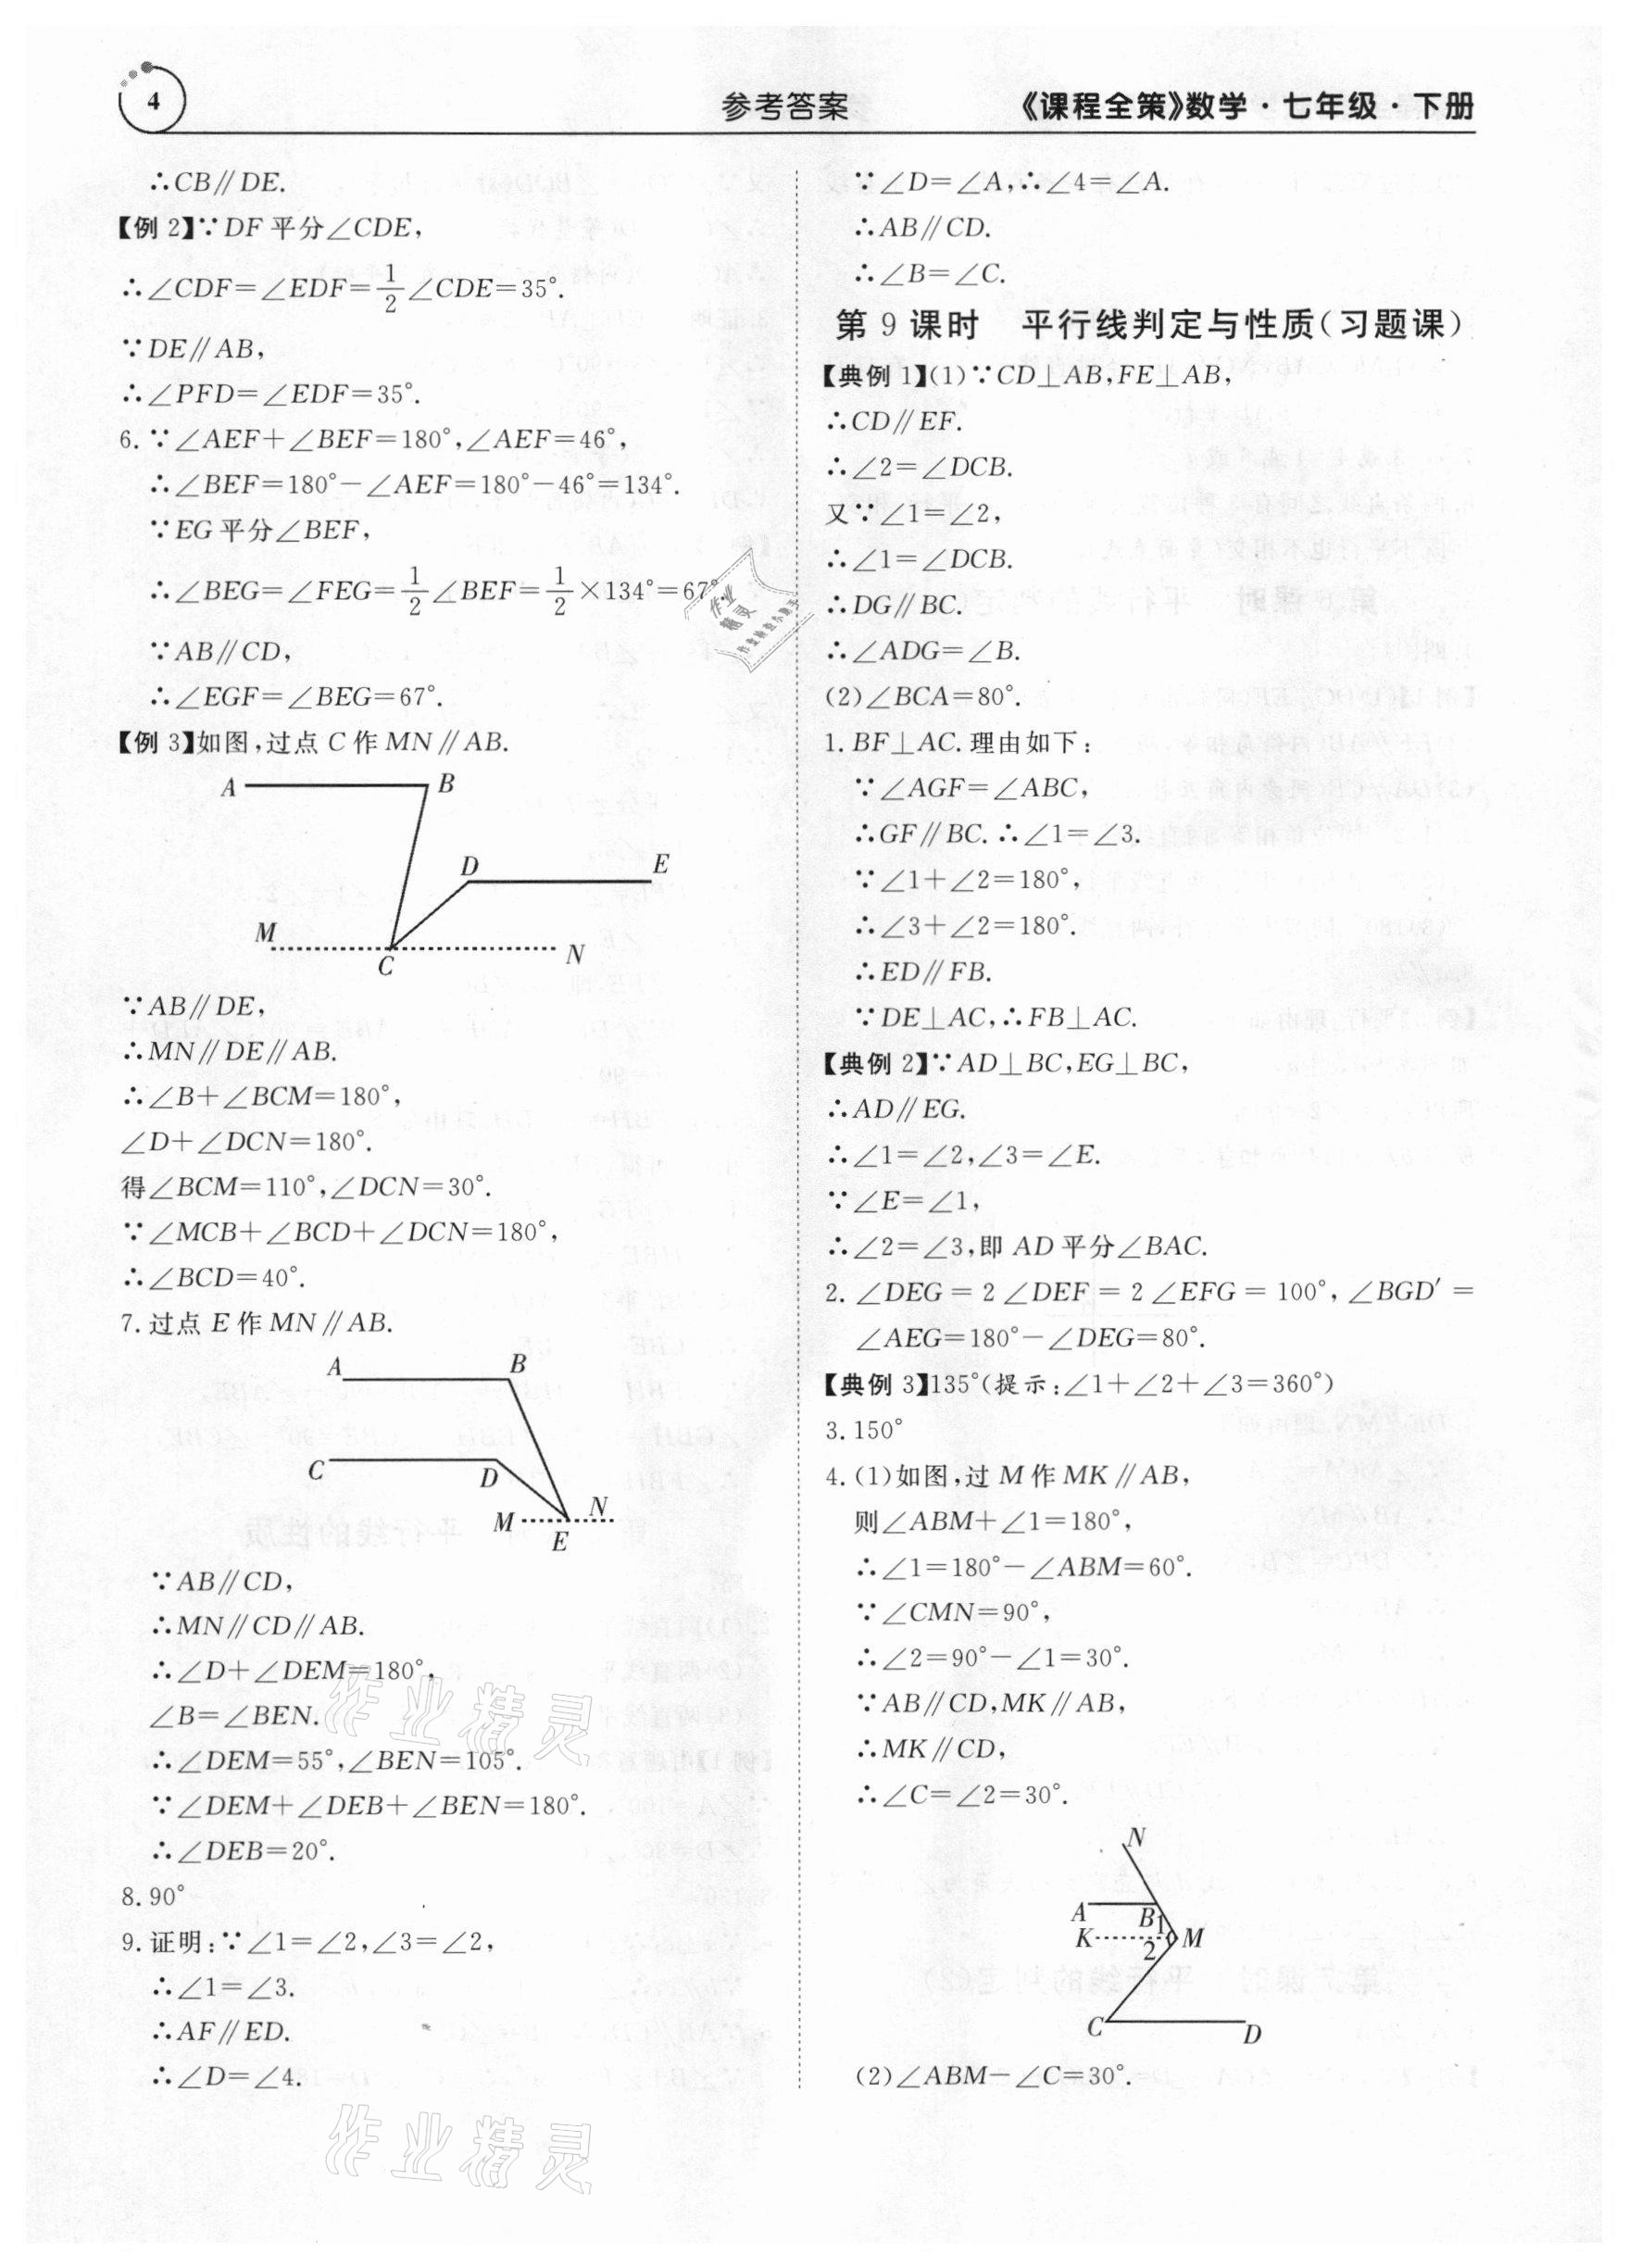 4
参考答案
《课程全策》数学·七年级·下册
∴CB∥DE.
【例 2】∵DF 平分∠CDE,
∴∠CDF=∠EDF=1/2∠CDE=35°.
∵DE∥AB,
∴∠PFD=∠EDF=35°.
6. ∵∠AEF+∠BEF=180°,∠AEF=46°,
∴∠BEF=180°-∠AEF=180°-46°=134°.
∵EG 平分∠BEF,
∴∠BEG=∠FEG=1/2∠BEF=1/2×134°=67°.
∵AB∥CD,
∴∠EGF=∠BEG=67°.
【例 3】如图,过点 C 作 MN∥AB.
A B
D E
M N
C
∵AB∥DE,
∴MN∥DE∥AB.
∴∠B+∠BCM=180°,
∠D+∠DCN=180°.
得∠BCM=110°,∠DCN=30°.
∵∠MCB+∠BCD+∠DCN=180°,
∴∠BCD=40°.
7. 过点 E 作 MN∥AB.
A B
C D
M N
E
∵AB∥CD,
∴MN∥CD∥AB.
∴∠D+∠DEM=180°,
∠B=∠BEN.
∴∠DEM=55°,∠BEN=105°.
∵∠DEM+∠DEB+∠BEN=180°.
∴∠DEB=20°.
8. 90°
9. 证明:∵∠1=∠2,∠3=∠2,
∴∠1=∠3.
∴AF∥ED.
∴∠D=∠4.
∵∠D=∠A,∴∠4=∠A.
∴AB∥CD.
∴∠B=∠C.
第 9 课时 平行线判定与性质(习题课)
【典例 1】(1)∵CD⊥AB,FE⊥AB,
∴CD∥EF.
∴∠2=∠DCB.
又∵∠1=∠2,
∴∠1=∠DCB.
∴DG∥BC.
∴∠ADG=∠B.
(2)∠BCA=80°.
1. BF⊥AC. 理由如下:
∵∠AGF=∠ABC,
∴GF∥BC. ∴∠1=∠3.
∵∠1+∠2=180°,
∴∠3+∠2=180°.
∴ED∥FB.
∵DE⊥AC,∴FB⊥AC.
【典例 2】∵AD⊥BC,EG⊥BC,
∴AD∥EG.
∴∠1=∠2,∠3=∠E.
∵∠E=∠1,
∴∠2=∠3,即 AD 平分∠BAC.
2. ∠DEG = 2 ∠DEF = 2 ∠EFG = 100°, ∠BGD′ =
∠AEG=180°-∠DEG=80°.
【典例 3】135°(提示:∠1+∠2+∠3=360°)
3. 150°
4. (1)如图,过 M 作 MK∥AB,
则∠ABM+∠1=180°,
∴∠1=180°-∠ABM=60°.
∵∠CMN=90°,
∴∠2=90°-∠1=30°.
∵AB∥CD,MK∥AB,
∴MK∥CD,
∴∠C=∠2=30°.
N
A B 1
K 2 M
C D
(2)∠ABM-∠C=30°.
作业精灵
作业精灵
作业精灵